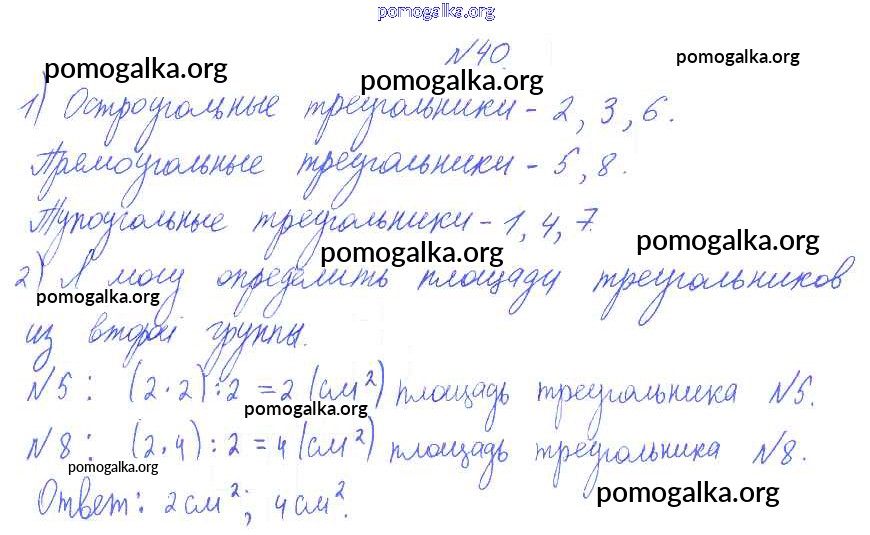 pomogalka.org
№40.
pomogalka.org pomogalka.org pomogalka.org
1) Остроугольные треугольники - 2, 3, 6.
Прямоугольные треугольники - 5, 8.
Тупоугольные треугольники - 1, 4, 7.
pomogalka.org pomogalka.org
2) Я могу определить площади треугольников
pomogalka.org
из второй группы.
№5: (2·2):2 = 2 (см²) площадь треугольника №5.
pomogalka.org
№8: (2·4):2 = 4 (см²) площадь треугольника №8.
pomogalka.org
Ответ: 2см²; 4см².
pomogalka.org